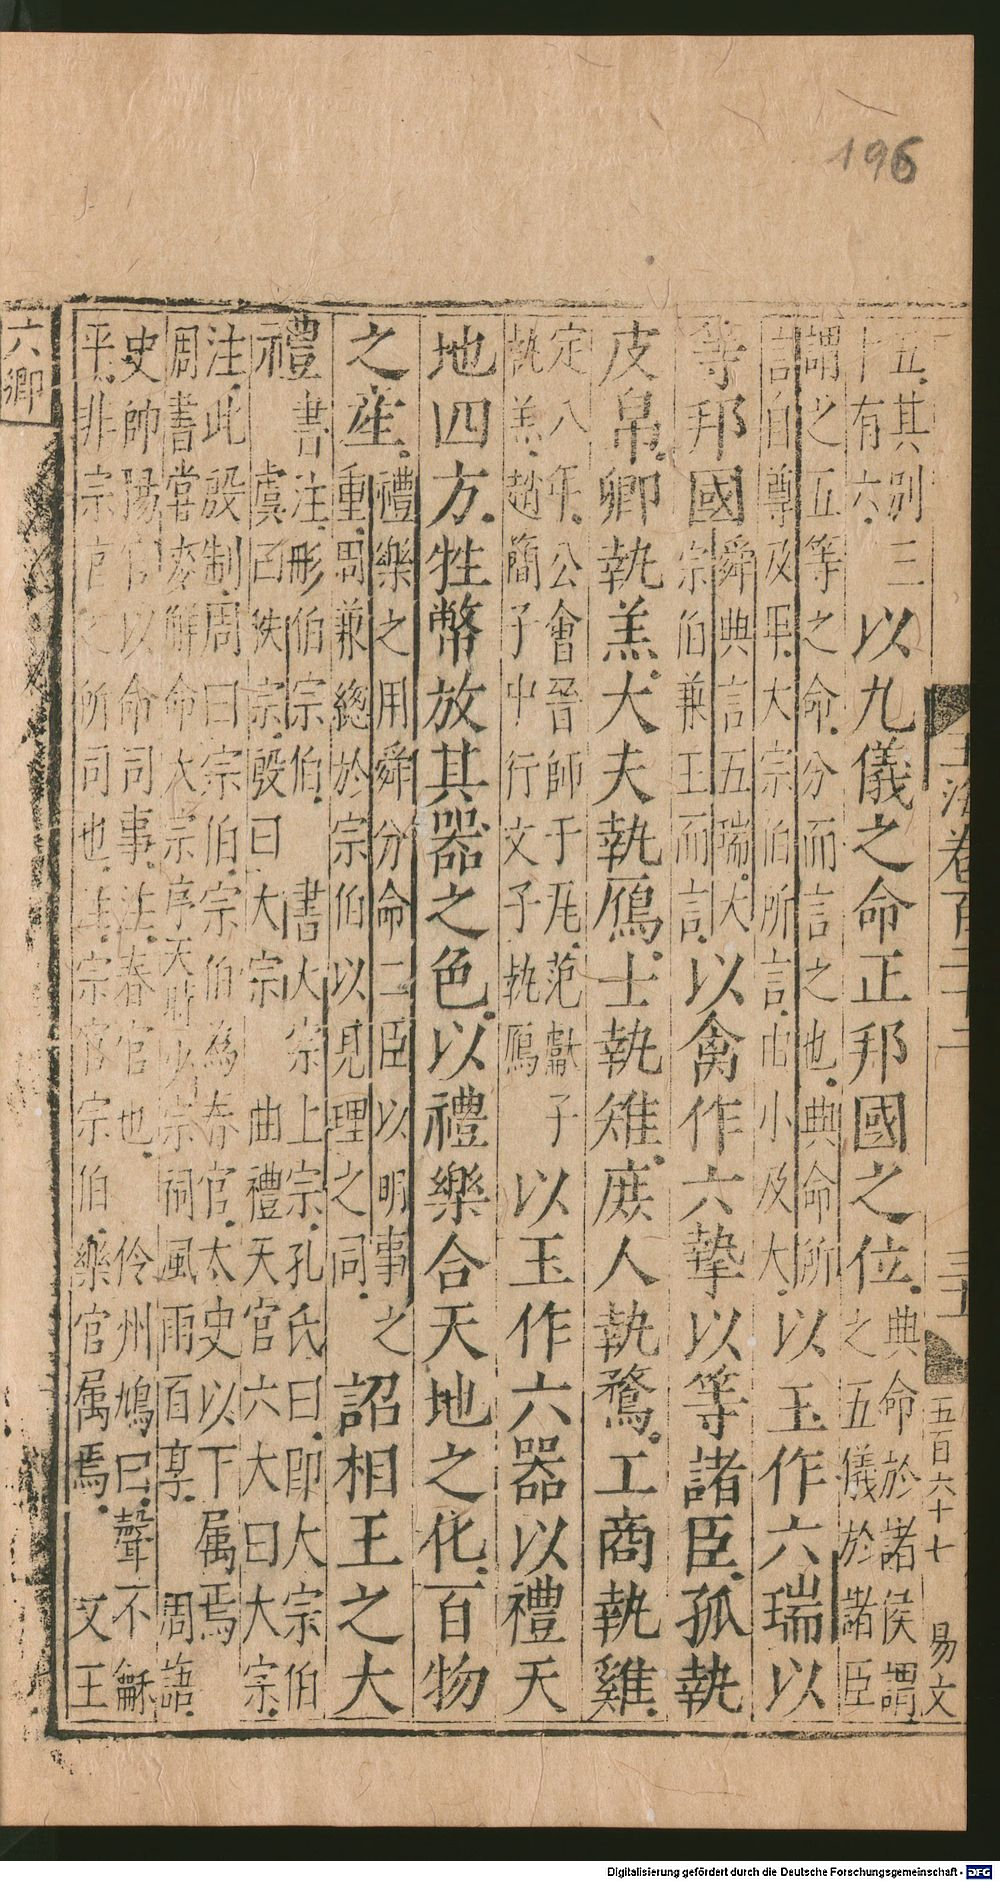 196
玉海卷百二十二
五百六十七
易文
五其別三
十有六
以九儀之命正邦國之位
典命於諸侯謂
之五儀於諸臣
謂之五等之命分而言之也典命所
言自尊及卑大宗伯所言由小及大
以玉作六瑞以
等邦國
舜典言五瑞大
宗伯兼王而言
以禽作六摯以等諸臣孤執
皮帛卿執羔大夫執鴈士執雉庶人執鶩工商執雞
定八年公會晉師于瓦范獻子
執羔趙簡子中行文子執鴈
以玉作六器以禮天
地四方牲幣放其器之色以禮樂合天地之化百物
之産
禮樂之用舜分命二臣以明事之
重周兼總於宗伯以見理之同
詔相王之大
禮
書注彤伯宗伯
虞曰秩宗殷曰大宗
書大宗上宗孔氏曰即大宗伯
曲禮天官六大曰大宗
注此殷制周曰宗伯宗伯為春官太史以下属焉
周書嘗麥解命大宗序天時少宗祠風雨百享
周語
史帥陽官以命司事注春官也
伶州鳩曰聲不龢
平非宗官之所司也注宗官宗伯樂官属焉
文王
六卿
Digitalisierung gefördert durch die Deutsche Forschungsgemeinschaft - DFG